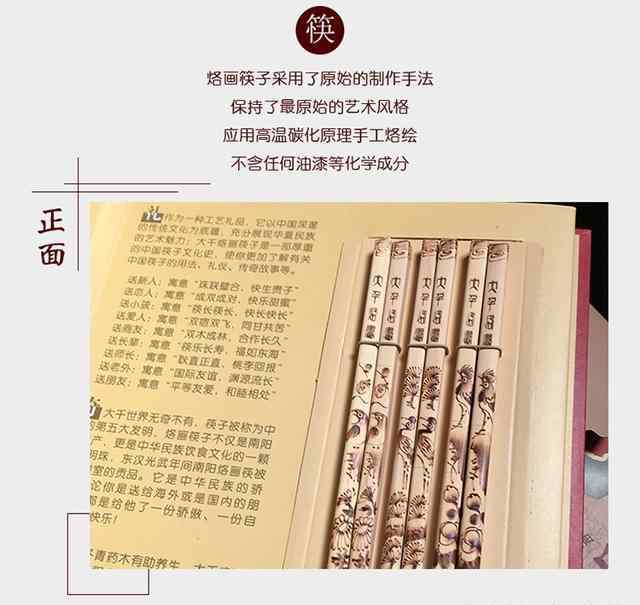 筷
烙画筷子采用了原始的制作手法
保持了最原始的艺术风格
应用高温碳化原理手工烙绘
不含任何油漆等化学成分
正面
礼作为一种工艺礼品，它以中国深邃
的传统文化为底蕴，充分展现华夏民族
的艺术魅力；大千烙画筷子是一部厚重
的中国筷子文化史，使你更加了解有关
中国筷子的用法、礼仪、传奇故事等。
送新人：寓意“珠联璧合，快生贵子”
送恋人：寓意“成双成对，快乐甜蜜”
送小孩：寓意“筷长筷长，快长快长”
送爱人：寓意“双宿双飞，同甘共苦”
送商友：寓意“双木成林，合作长久”
送长辈：寓意“筷乐长寿，福如东海”
送师长：寓意“耿直正直，桃李回报”
送老外：寓意“国际友谊，渊源流长”
送朋友：寓意“平等友爱，和睦相处”
大千世界无奇不有，筷子被称为中
的第五大发明，烙画筷子不仅是南阳
产，更是中华民族饮食文化的一颗
明珠，东汉光武年间南阳烙画筷被
室的贡品。它是中华民族的骄
论你是送给海外或是国内的朋
是给他了一份骄傲、一份自
快乐！
青药木有助养生，大千